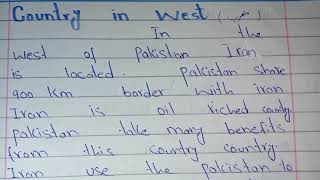 Country in West (مغرب)
In the
west of Pakistan Iran
is located. Pakistan share
900 km border with iron
Iran is oil riched country
pakistan take many benefits
from this country country.
Iran use the pakistan to